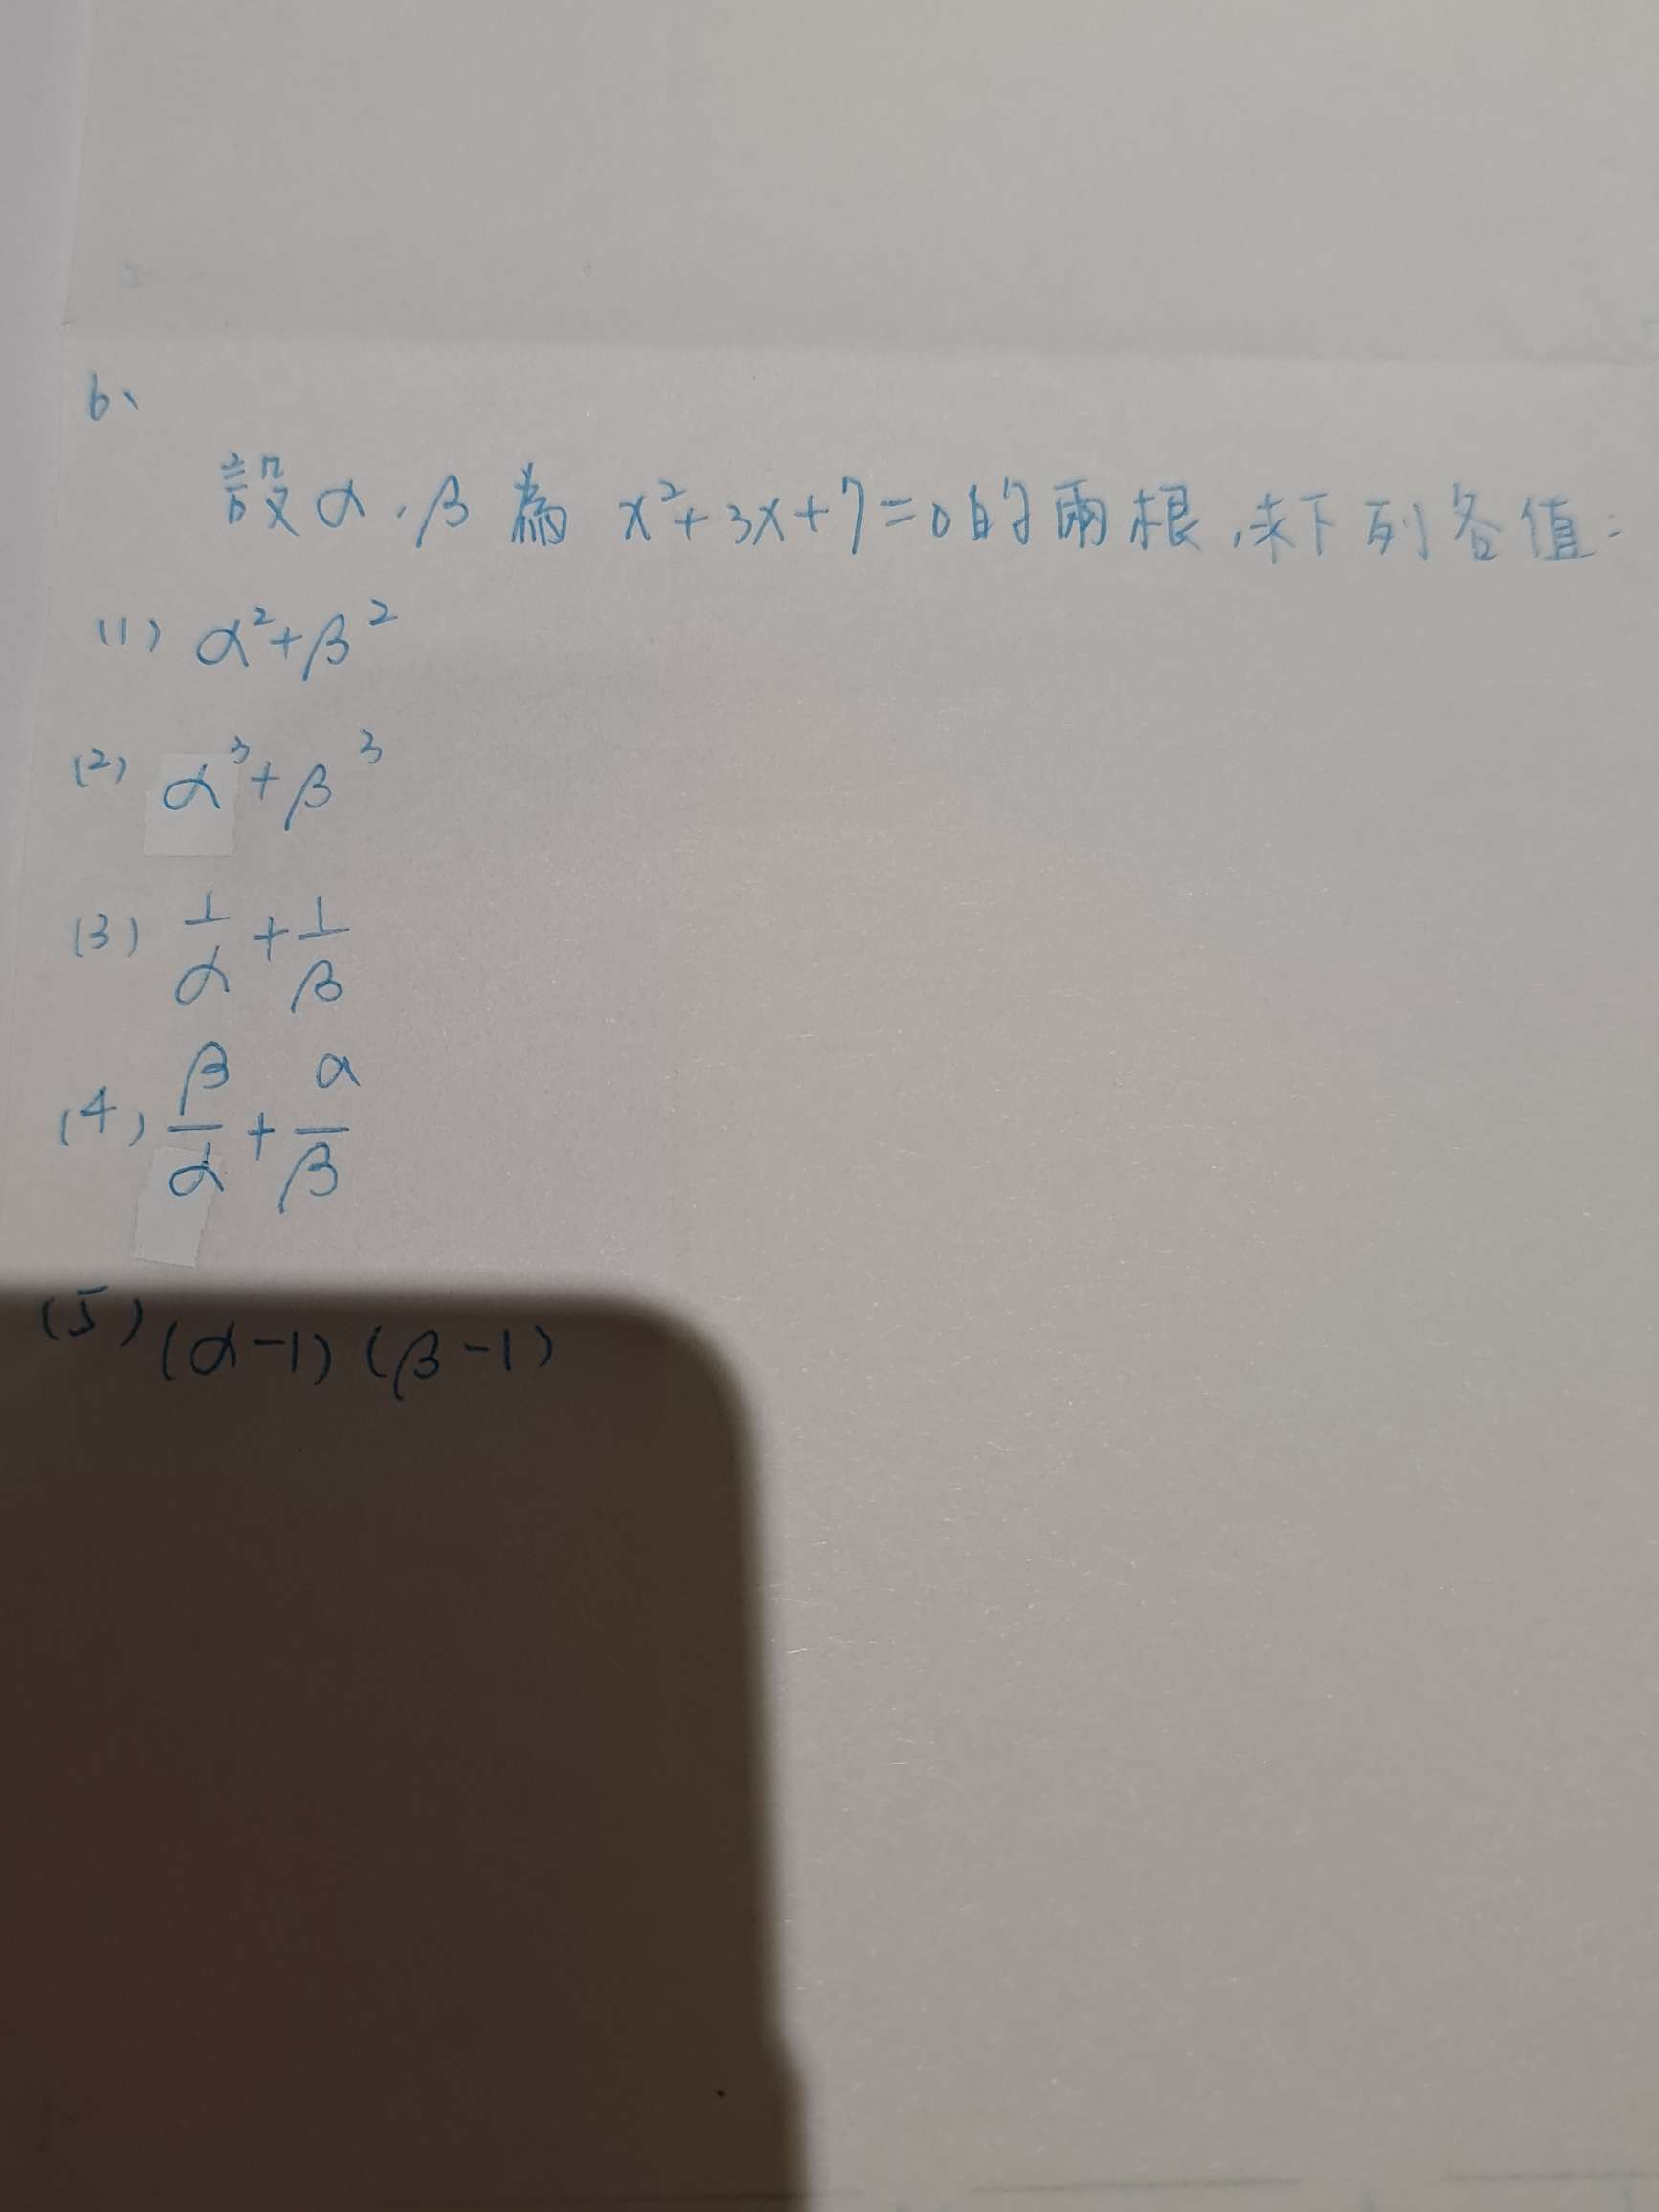 6、
設α、β為 x²+3x+7=0的兩根,求下列各值:
(1) α²+β²
(2) α³+β³
(3) 1/α + 1/β
(4) β/α + α/β
(5) (α-1)(β-1)